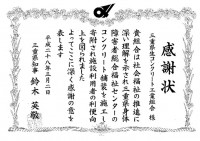 感謝状
三重県生コンクリート工業組合 様
貴組合は社会福祉の推進に
深い理解を示され三重県身体
障害者総合福祉センターの
コンクリート舗装を施工し
寄附され施設利用者の利便向
上を図られました
よってここに深く感謝の意を
表します
平成二十八年三月二日
三重県知事 鈴木 英敬